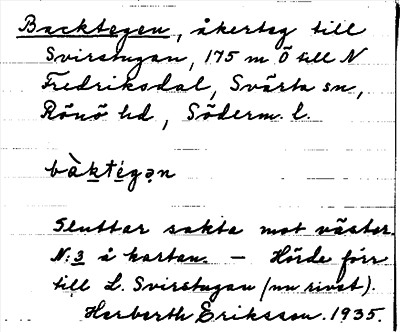 Backtegen, åkerteg till
Svirstugan, 175 m Ö till N
Fredriksdal, Svärta sn,
Rönö hd, Söderm. l.
bàktég̣ən
Sluttar sakta mot väster.
N:3 å kartan. – Hörde förr
till L. Svirstugan (nu rivet).
Herberth Eriksson. 1935.